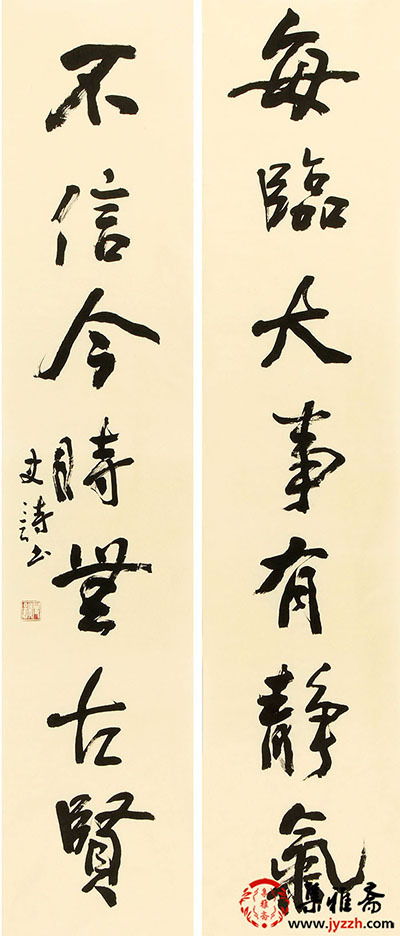 每臨大事有靜氣
不信今時無古賢
集雅斋
www.jyzzh.com